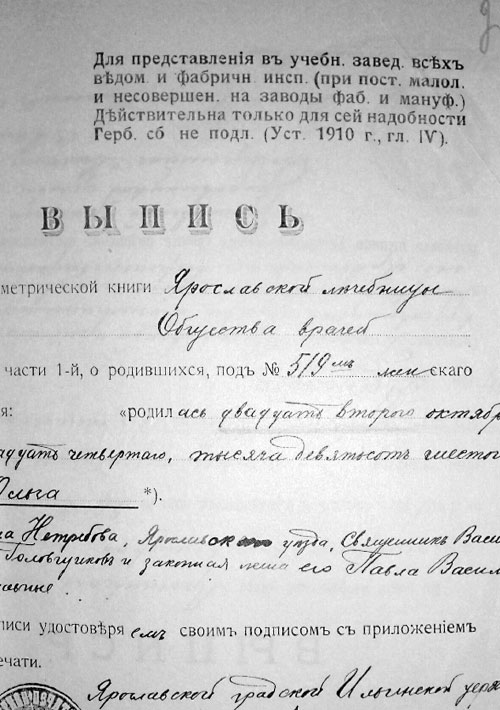 Для представленія въ учебн. завед. всѣхъ
вѣдом. и фабричн. инсп. (при пост. малол.
и несовершен. на заводы фаб. и мануф.)
Дѣйствительна только для сей надобности
Герб. сб не подл. (Уст. 1910 г., гл. IV).
ВЫПИСЬ
метрической книги Ярославской лечебницы
Общества врачей
части 1-й, о родившихся, подъ № 519мъ женскаго
я: «родилась двадцать второго октябр
адцать четвертаго, тысяча девятьсотъ шестог
Ольга *).
Нетребова, Ярославск уезда, Священникъ Васи
Головщиковъ и законная жена его Павла Васил
писи удостовѣряемъ своимъ подписомъ съ приложеніемъ
ечати.
Ярославской градской Ильинской церк